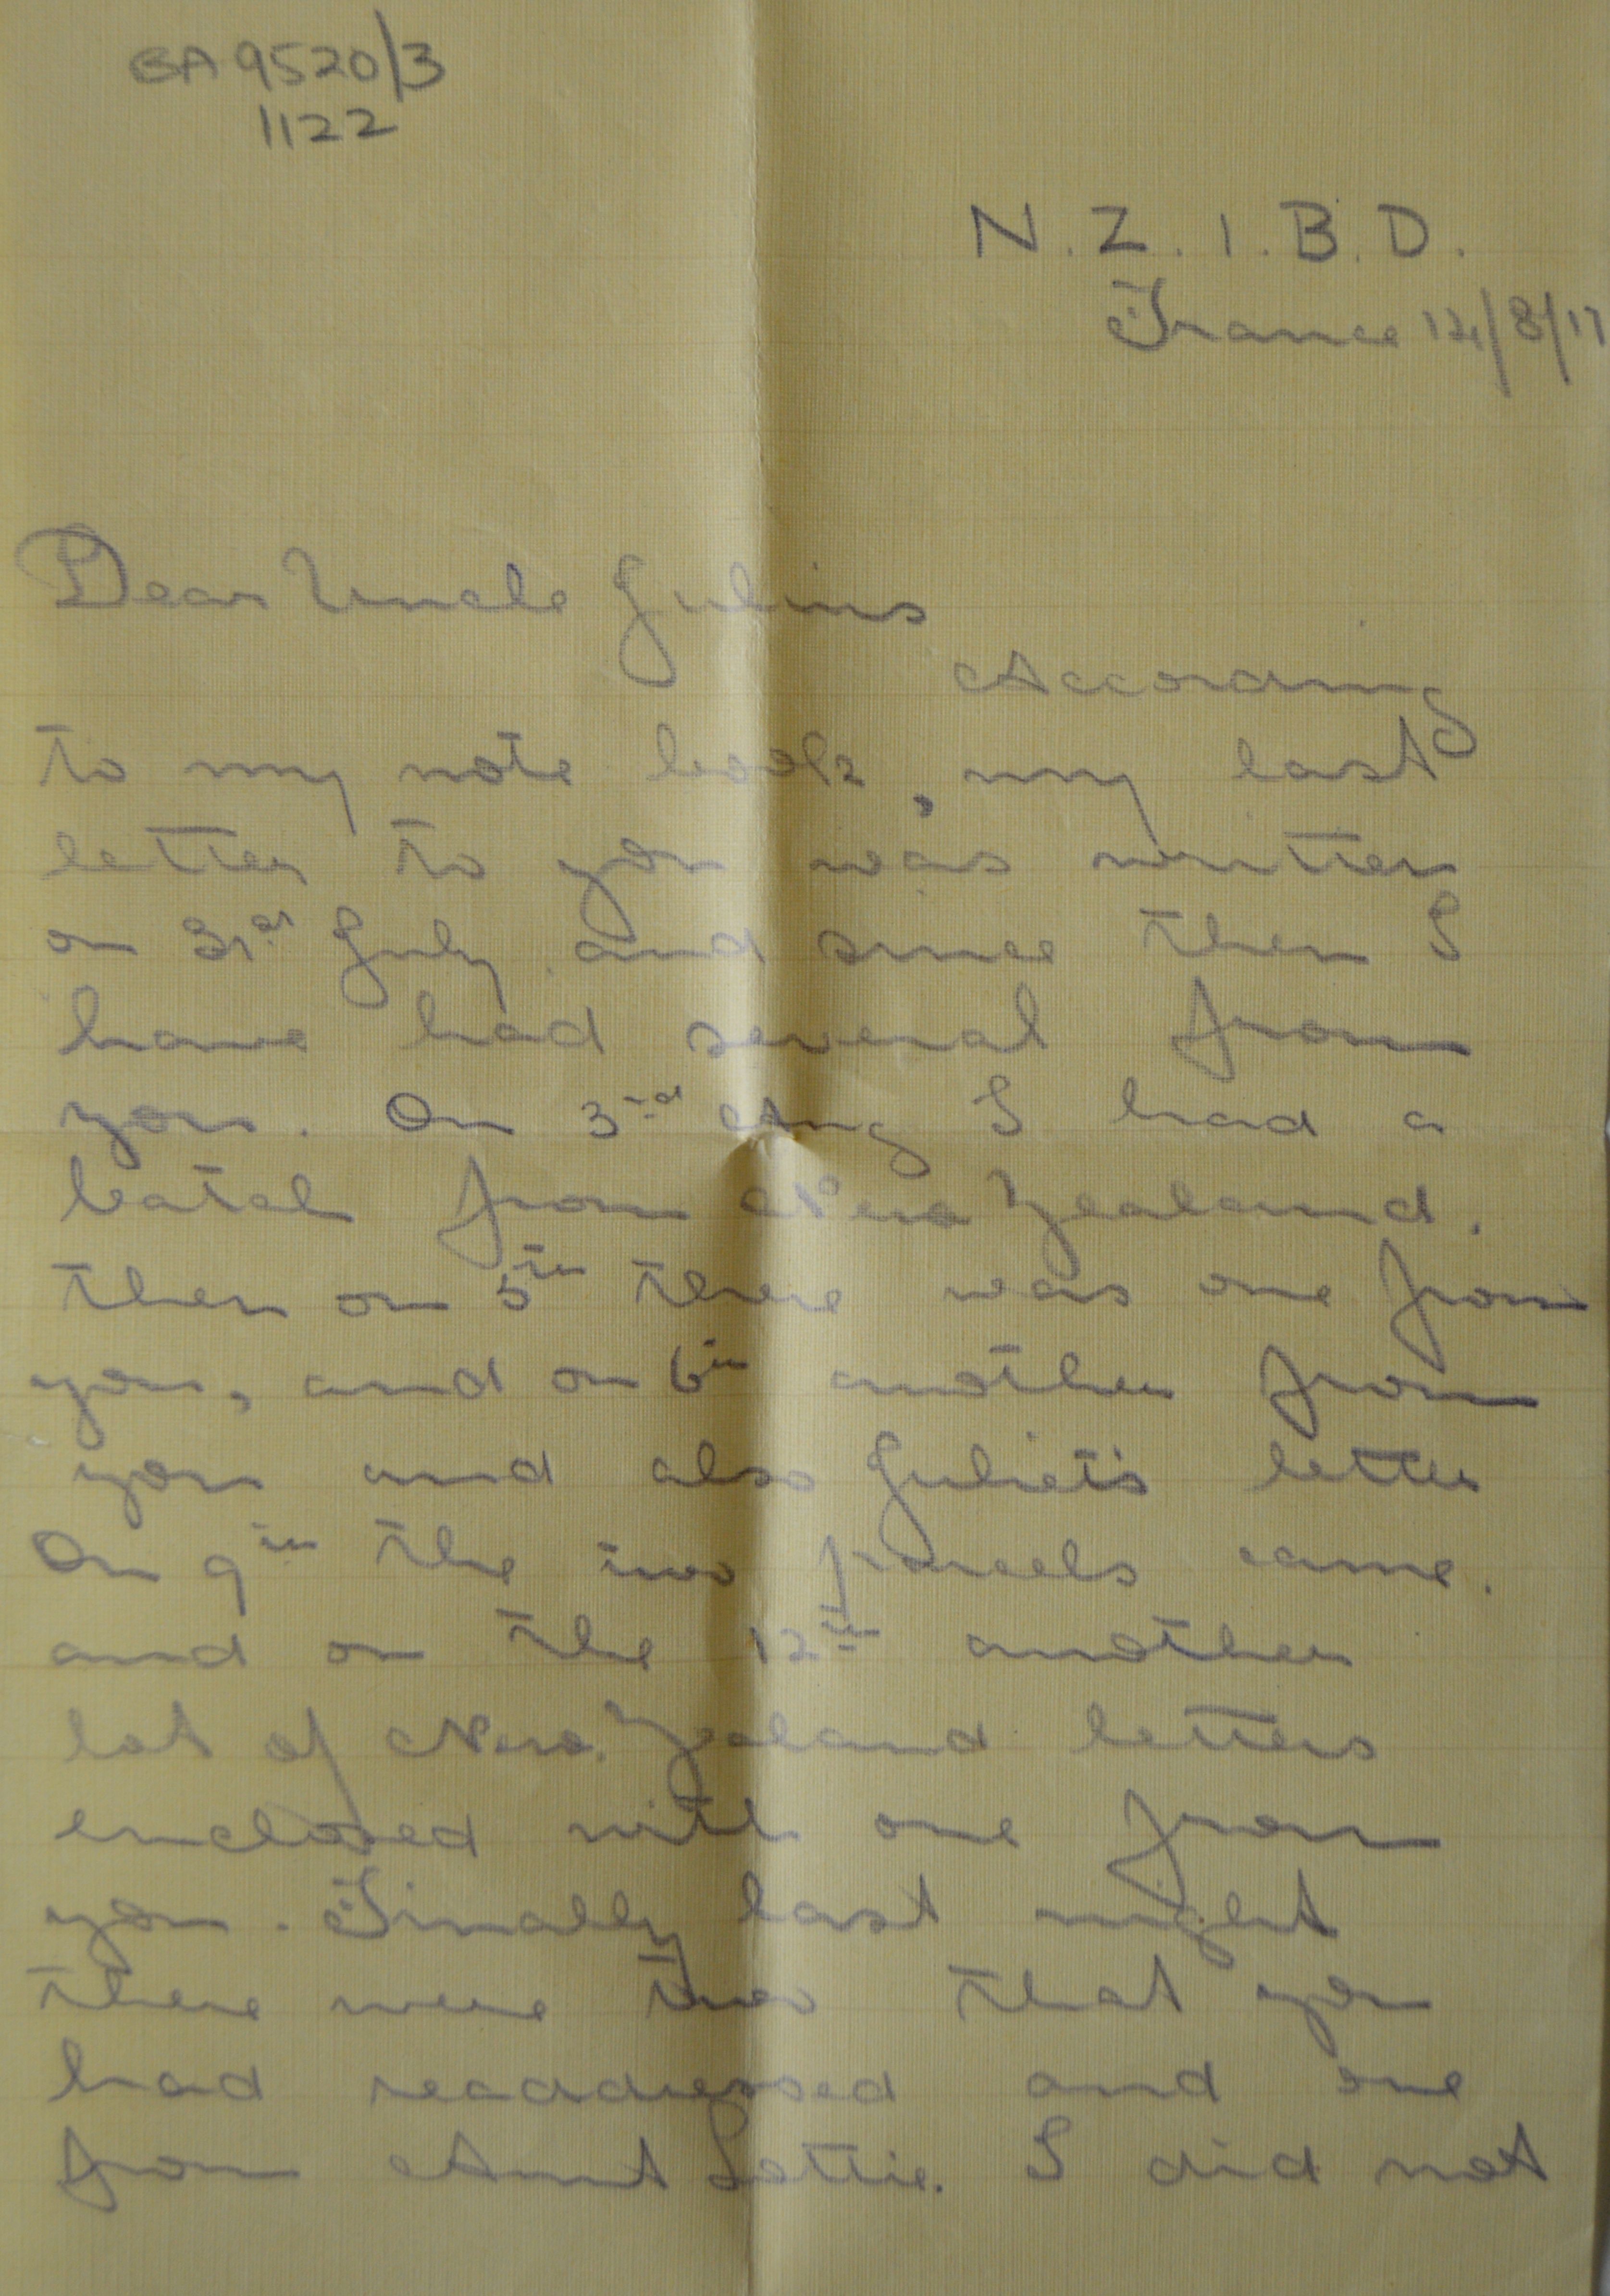 GA 9520/3
1122
N.Z.I.B.D.
France 14/8/17
Dear Uncle Julius
According
to my note book, my last
letter to you was written
on 31st July and since then I
have had several from
you. On 3rd Aug I had a
batch from New Zealand.
then on 5th there was one from
you, and on 6th another from
you and also Juliet's letter
On 9th the two parcels came.
and on the 12th another
lot of New Zealand letters
enclosed with one from
you. Finally last night
there were two that you
had readdressed and one
from Aunt Lottie. I did not